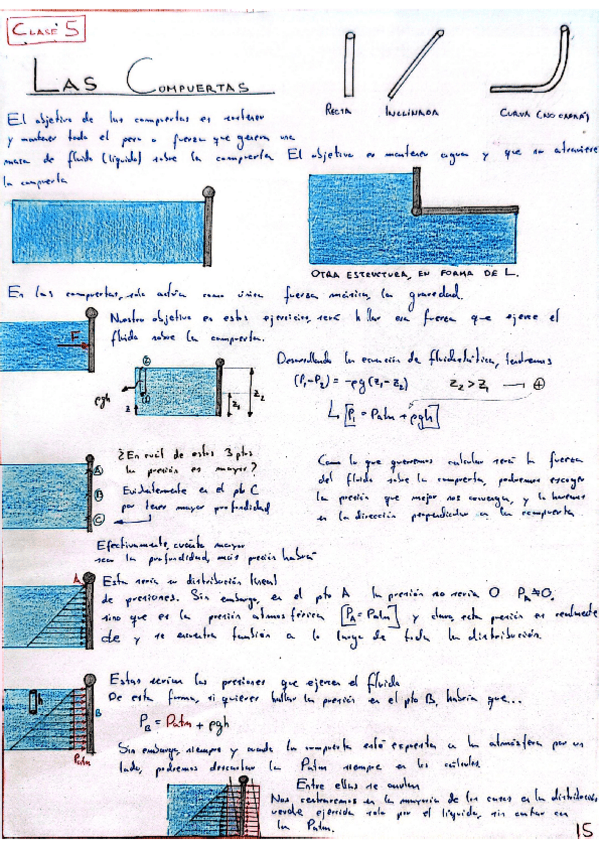 CLASE 5
LAS COMPUERTAS
RECTA
INCLINADA
CURVA (NO CAERÁ)
El objetivo de las compuertas es sostener
y mantener todo el peso o fuerza que genera una
masa de fluido (líquido) sobre la compuerta
El objetivo es mantener agua y que no atraviese
la compuerta
OTRA ESTRUCTURA, EN FORMA DE L.
En las compuertas, solo actúa como única fuerza másica, la gravedad.
Nuestro objetivo en estos ejercicios, será hallar esa fuerza que ejerce el
fluido sobre la compuerta.
F
Desarrollando la ecuación de fluidostática, tendremos
(P₁-P₂) = -ρg(z₁-z₂) z₂>z₁ → ⊕
P₁ = Patm + ρgh
ρgh
② ①
z z₁ z₂
¿En cuál de estos 3 ptos
la presión es mayor?
Evidentemente en el pto C
por tener mayor profundidad
A
B
C
Como lo que queremos calcular será la fuerza
del fluido sobre la compuerta, podremos escoger
la presión que mejor nos convenga, y la haremos
en la dirección perpendicular a la compuerta.
Efectivamente, cuanta mayor
sea la profundidad, más presión habrá
A
Esta sería su distribución lineal
de presiones. Sin embargo, en el pto A la presión no sería 0 P_A≠0,
sino que es la presión atmosférica [P_A = Patm] y claro, esta presión es realmente
y se encuentra también a lo largo de toda la distribución.
Estas serían las presiones que ejercen el fluido
De esta forma, si quieres hallar la presión en el pto B, habría que...
h
B
Patm
P_B = Patm + ρgh
Sin embargo, siempre y cuando la compuerta esté expuesta a la atmósfera por un
lado, podremos descartar la Patm siempre en los cálculos.
Entre ellas se anulan
Nos centraremos en la mayoría de los casos en la distribución
verde ejercida solo por el líquido, sin entrar en
la Patm.
15